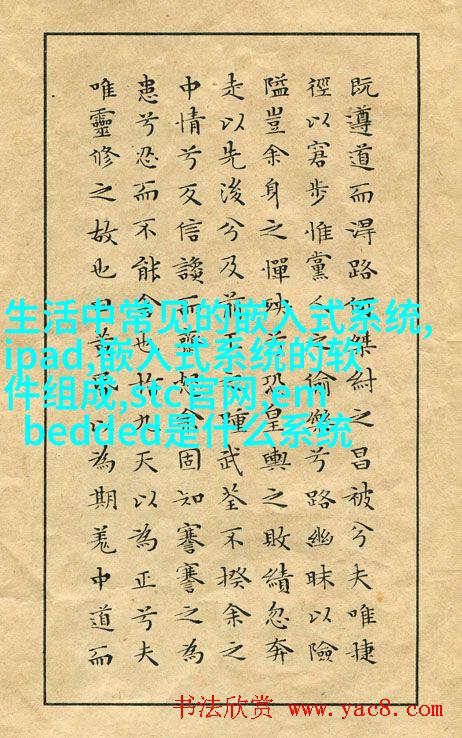 既遵道而淂路何桀紂之昌被兮夫唯捷
徑以窘步惟黨人之偷樂兮路幽昧以險
隘豈余身之憚殃兮恐皇輿之敗績忽奔
走以先後兮及前王之踵武荃不揆余之
中情兮反信讒而齌怒余固知謇謇之為
患兮忍而不能舍也指九天以為正兮夫
唯靈修之故也曰黃昏以為期羗中道而
生活中常见的嵌入式系统,
ipad,嵌入式系统的软
件组成,stc官网,em
bedded是什么系统
书法欣赏 www.yac8.com